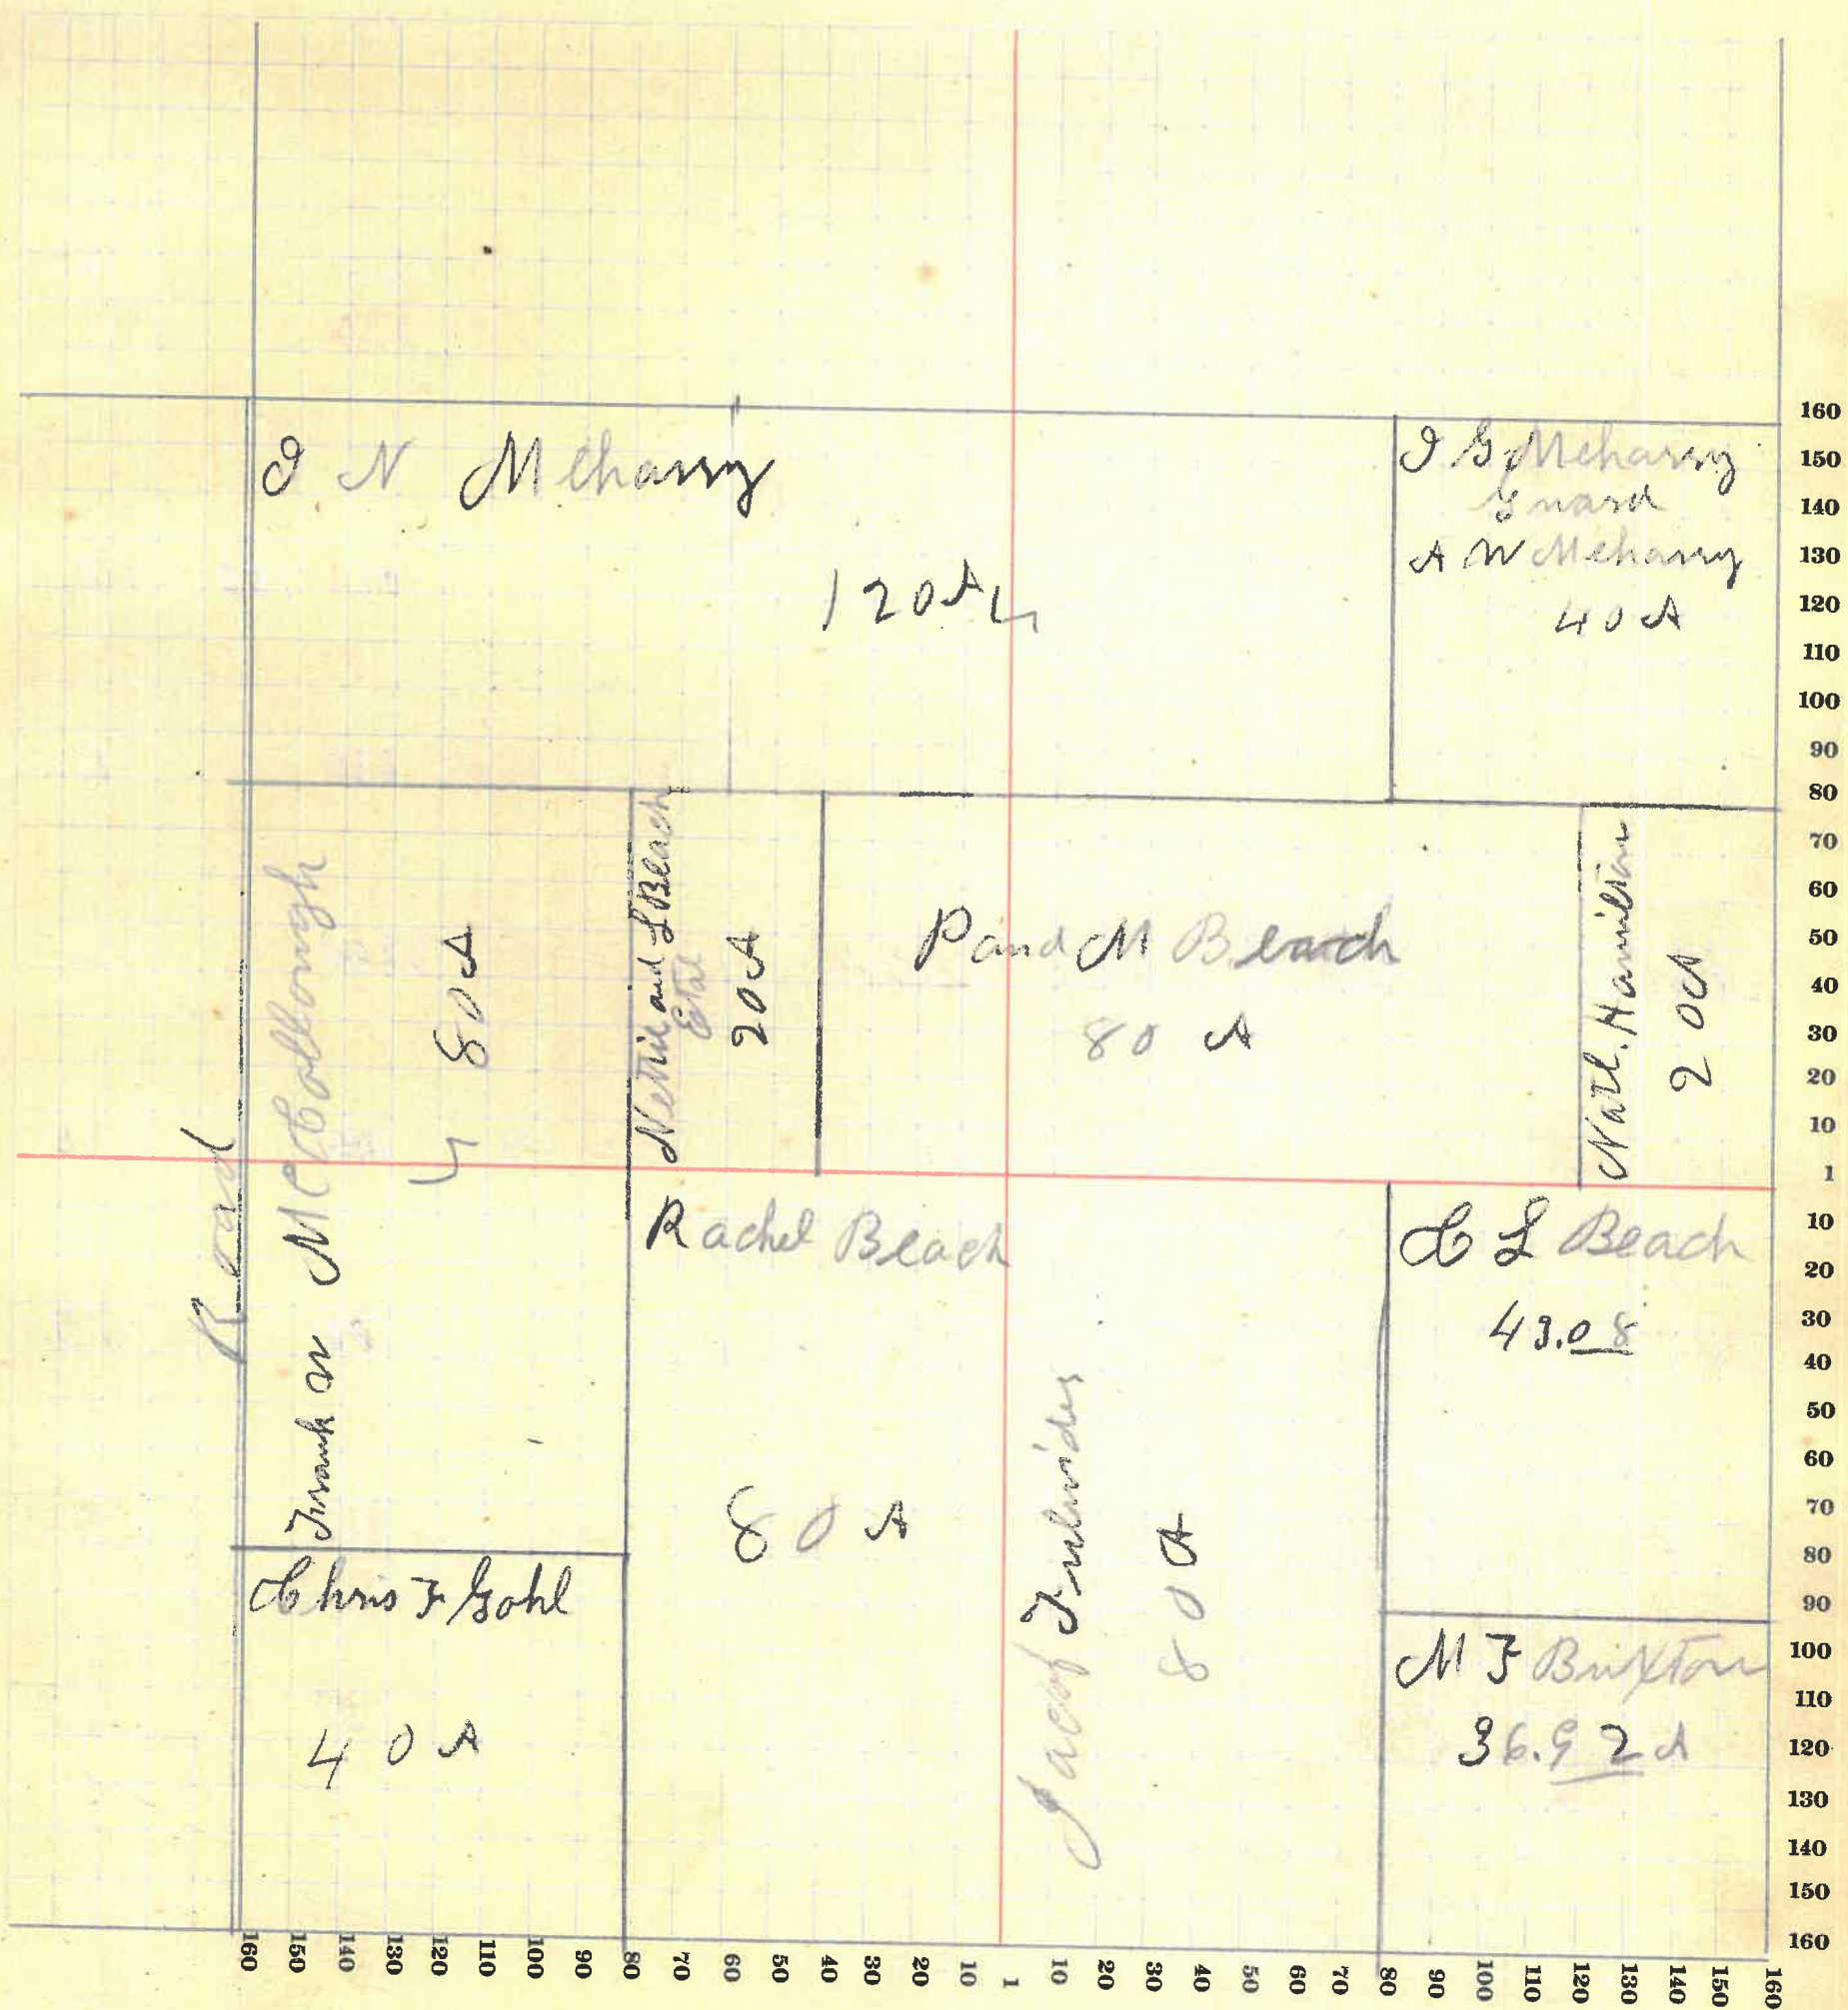 I N Meharry
120 A
I G Meharry
Guard
A W Meharry
40 A
Road
Frank W McCollough
80 A
Nettie and L Beach
Etal
20 A
P and M Beach
80 A
Natl. Hamilton
20A
Rachel Beach
80 A
Jacob
80 A
C L Beach
43.08
M F Buxton
36.92 A
Chris F Gohl
40 A
160
150
140
130
120
110
100
90
80
70
60
50
40
30
20
10
1
10
20
30
40
50
60
70
80
90
100
110
120
130
140
150
160
160 150 140 130 120 110 100 90 80 70 60 50 40 30 20 10 1 10 20 30 40 50 60 70 80 90 100 110 120 130 140 150 160